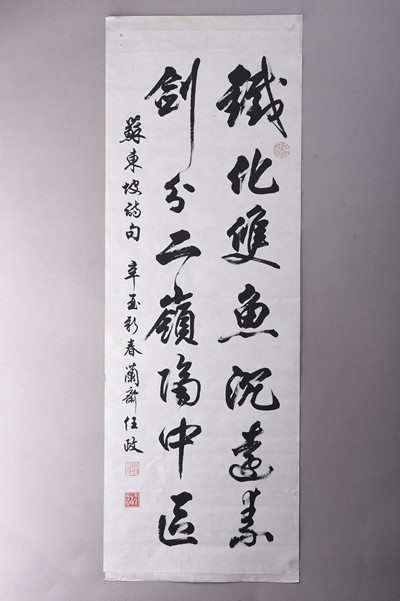 鐵化雙魚沉遠素
劍分二嶺隔中區
蘇東坡詩句 辛酉新春蘭齋任政